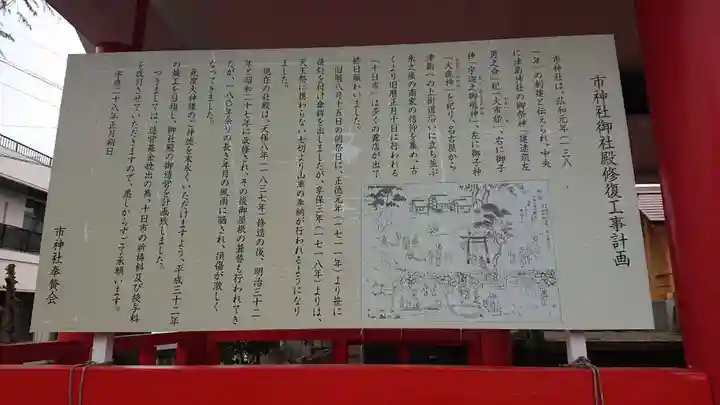 市神社御社殿修復工事計画
市神社は、弘和元年(一三八
一年)の創建と伝えられ、中央
に津島神社の御祭神「建速須佐
男之命」妃「大市姫」、右に御子
神「宇迦之御魂神」、左に御子神
「大歳神」を祀り、名古屋から
津島への上街道沿いに立ち並ぶ
米之座の商家の信仰を集め、古
くより旧暦正月十日に行われる
「十日市」は多くの露店が出て
終日賑わいました。
旧暦八月十五日の例祭日に、正徳元年(一七一一年)より笹に
後幻を付け傘鉾を出しましたが、享保三年(一七一八年)よりは、
天王祭に携わらない七切より山車の奉納が行われるようになり
ました。
現在の社殿は、天保八年(一八三七年)修造の後、明治三十二
年と昭和二十七年に改修され、その後御屋根の葺替も行われてき
たが、一八〇年余りの長き年月の風雨に晒され、損傷が激しく
なってきました。
就度大神様のご神徳を末永くいただけますよう、平成三十二年
の竣工を目指し、御社殿の御造営を計画致しました。
つきましては、造営基金捻出の為、十日市の祈祷料及び授与料
を改訂させていただきますので、悪しからずご了承願います。
平成二十八年正月朔日
市神社奉賛会